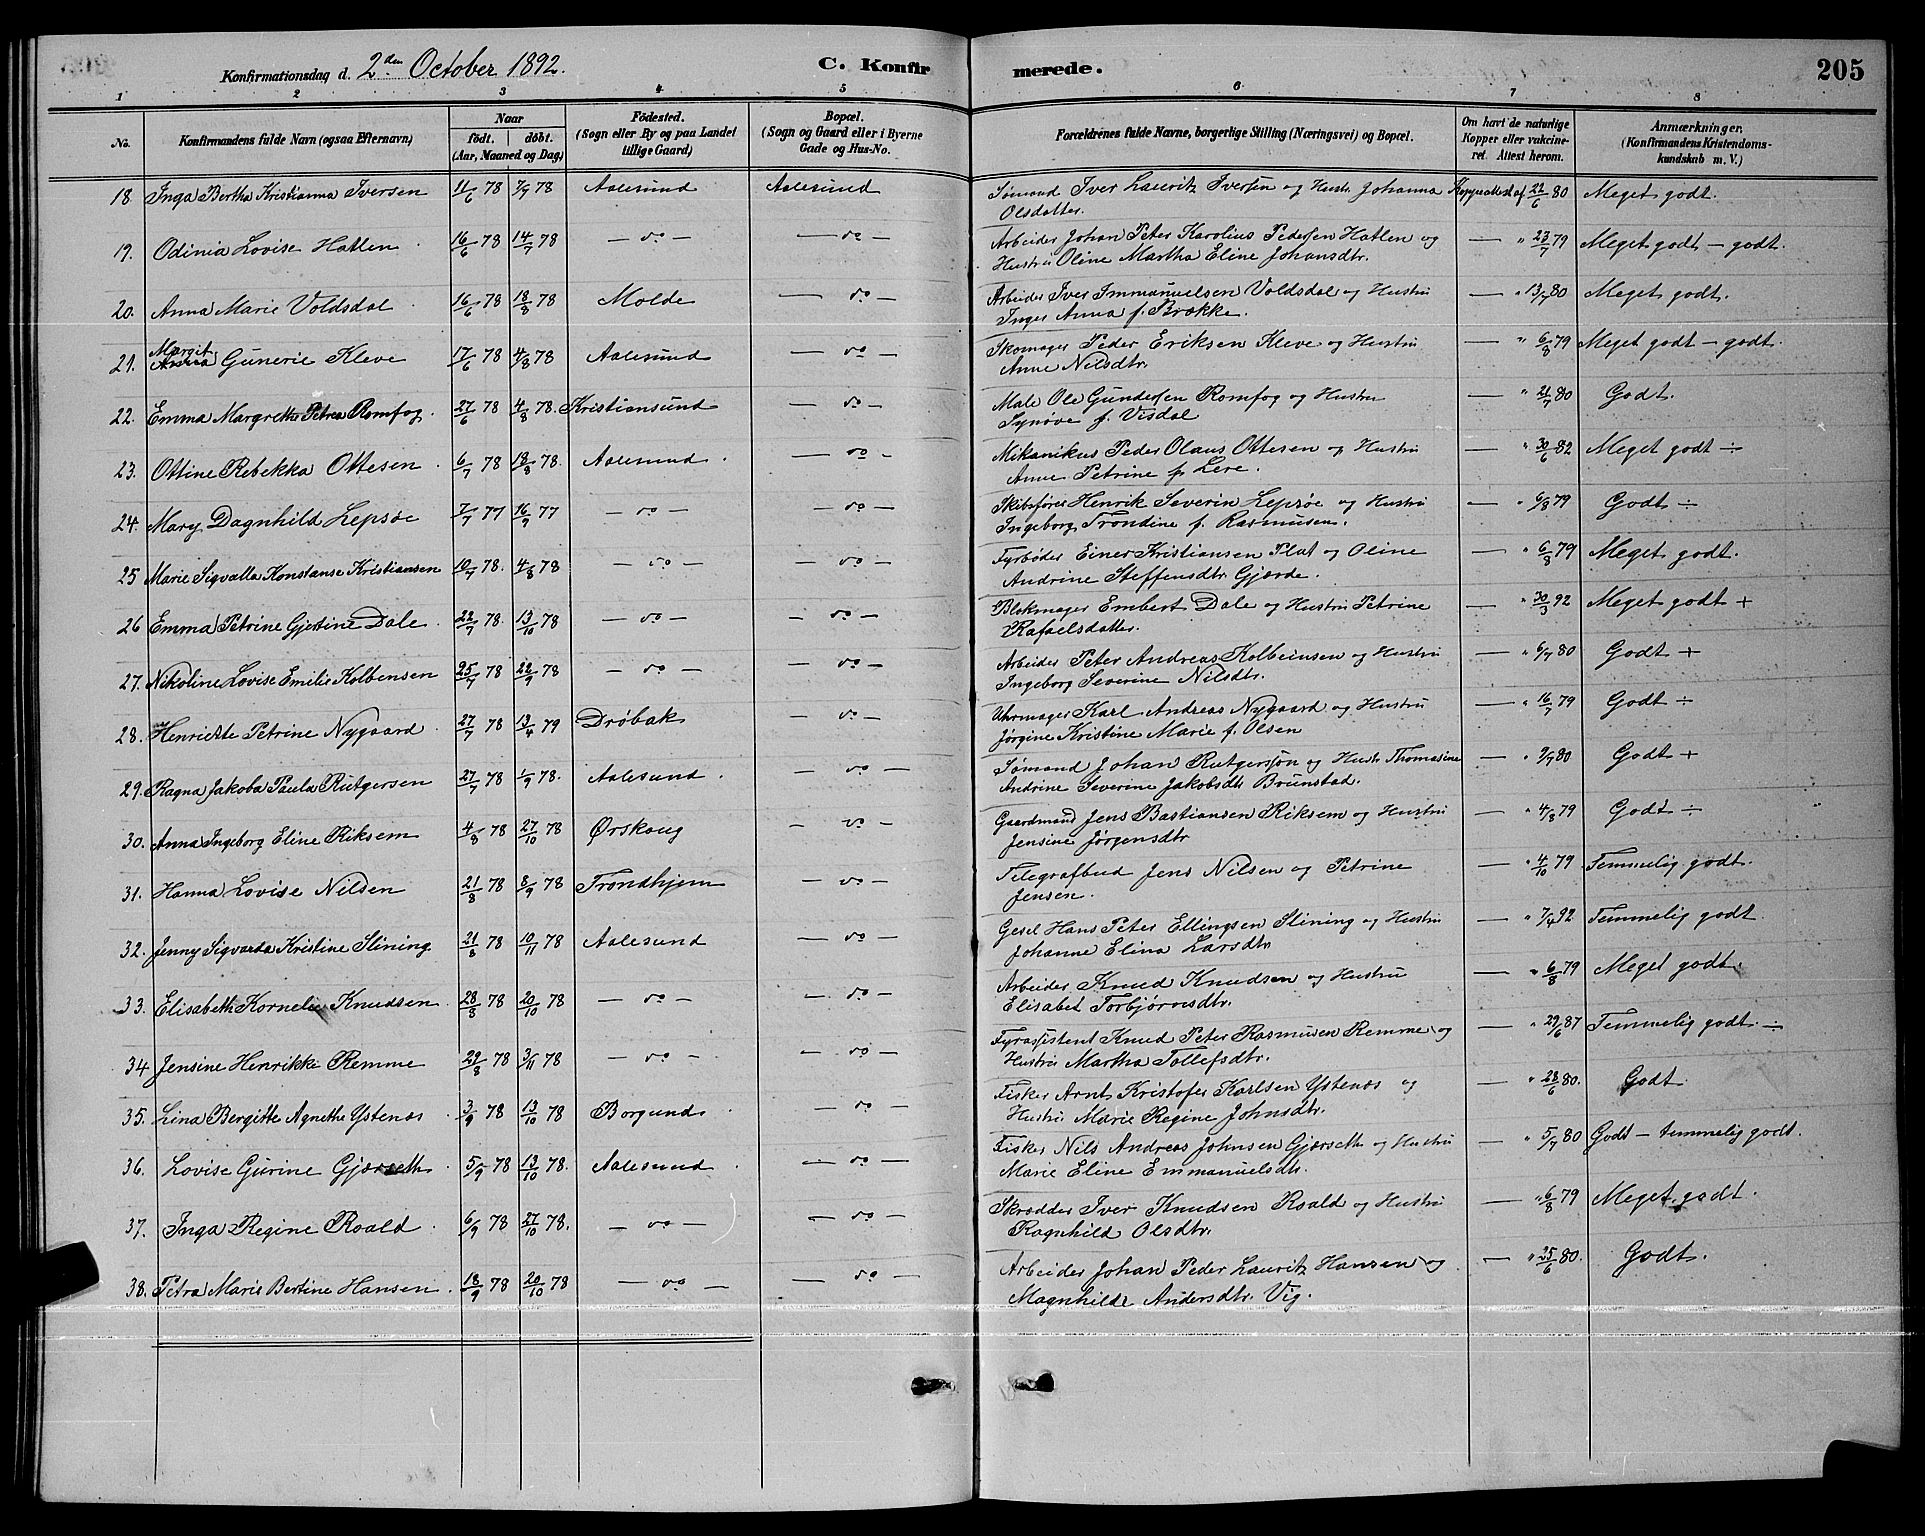 Konfirmationsdag d. 2den October 1892. C. Konfirmerede. 205
1 2 3 4 5 6 7 8
No. Konfirmandens fulde Navn (ogsaa Efternavn) Naar födt. döbt. (Aar, Maaned og Dag) Födested. (Sogn eller By og paa Landet tillige Gaard) Bopæl. (Sogn og Gaard eller i Byerne Gade og Hus-No. Forældrenes fulde Navne, borgerlige Stilling (Næringsvei) og Bopæl. Om havt de naturlige Kopper eller vakcineret. Attest herom. Anmærkninger. (Konfirmandens Kristendomskundskab m. V.)
18. Inga Bertha Kristianna Iversen 11/6 78 7/7 78 Aalesund Aalesund Sømand Iver Lauritz Iversen og Hustr. Johanna Koppeattest af 22/6 80 Meget godt.
Olsdatter.
19. Odinia Lovise Hatlen 16/6 78 14/7 78 — do — — do — Arbeider Johan Peter Karolius Pedersen Hatlen og — " 23/7 79 Meget godt — godt.
Hustru Oline Martha Eline Johansdtr.
20. Anna Marie Voldsdal 16/6 78 18/8 78 Molde — do — Arbeider Iver Immanuelsen Voldsdal og Hustru — " 13/7 80 Meget godt.
Inger Anna f. Brokke.
21. Margit Gunerie Kleve 17/6 78 4/8 78 Aalesund — do — Skomager Peder Eriksen Kleve og Hustru — " 6/8 79 Meget godt — godt.
Anne Nilsdtr.
22. Emma Margrethe Petrea Romfog 27/6 78 4/8 78. Kristiansund — do — Male Ole Gundersen Romfog og Hustru — " 21/7 80 Godt.
Synøve f. Visdal
23. Ottine Rebekka Ottesen 6/7 78 18/8 78. Aalesund — do — Mikanikus Peder Olaus Ottesen og Hustru — " 30/6 82 Meget godt ÷
Anne Petrine f. Lere.
24. Mary Dagnhild Lepsöe 7/7 77 16/9 77 — do — — do — Skibsfører Henrik Severin Lepsöe og Hustru — " 6/8 79 Godt ÷
Ingeborg Trondine f. Rasmusen.
25 Marie Sigvalla Konstanse Kristiansen 10/7 78. 4/8 78 — do — — do — Fyrbøder Einer Kristiansen Plat og Oline — " 6/8 79 Meget godt.
Andrine Steffensdtr. Gjærde.
26 Emma Petrine Gjertine Dale 22/7 78. 13/10 78 — do — — do — Blokmager Embert Dale og Hustru Petrine — " 30/3 92 Meget godt +
Rafaelsdatter.
27. Nikoline Lovise Emilie Kolbensen 25/7 78 22/9 78 — do — — do — Arbeider Peter Andreas Kolbeinsen og Hustru — " 6/7 80 Godt +
Ingeborg Severine Nilsdtr.
28. Henriette Petrine Nygaard 27/7 78 13/4 79 Drøbak — do — Uhrmager Karl Andreas Nygaard og Hustru — " 16/7 79 Godt ÷
Jørgine Kristine Marie f. Olsen
29. Ragna Jakoba Paula Rutgersen 27/7 78 1/9 78. Aalesund. — do — Sømand Johan Rutgerson og Hustr. Thomasine — " 9/7 80 Godt +
Andrine Severine Jakobsdtr Brunstad.
30. Anna Ingeborg Eline Riksem 4/8 78 27/10 78 Ørskoug — do — Gaardmand Jens Bastiansen Riksem og Hustru — " 4/8 79 Godt ÷
Jensine Jørgensdtr
31. Hanna Lovise Nilsen 21/8 78 8/9 78 Trondhjem — do — Telegrafbud Jens Nilsen og Petrine — " 4/10 79 Temmelig godt.
Jensen.
32. Jenny Sigvarda Kristine Slining 21/8 78 10/11 78 Aalesund — do — Gesel Hans Peter Ellingsen Slining og Hustru — " 7/4 92 Temmelig godt
Johanne Elina Larsdtr
33. Elisabeth Kornelie Knudsen 28/8 78 20/10 78 — do — — do — Arbeider Knud Knudsen og Hustru — " 6/8 79 Meget godt.
Elisabet Torbjørnsdtr.
34 Jensine Henrikke Remme 29/8 78 3/11 78 — do — — do — Fyrassistent Knud Peter Rasmusen Remme og — " 29/6 87 Temmelig godt ÷
Hustru Martha Tollefsdtr.
35. Lina Bergitte Agnethe Ystenes 3/9 78 13/10 78 Borgund — do — Fisker Arnt Kristofer Karlsen Ystenes og — " 28/6 80. Godt
Hustru Marie Regine Johnsdtr.
36. Lovise Gurine Gjærseth 5/9 78 13/10 78. Aalesund — do — Fisker Nils Andreas Johnsen Gjærseth og Hustru — " 5/7 80 Godt — temmelig godt.
Marie Eline Emmanuelsdtr.
37. Inga Regine Roald 6/9 78 27/10 78. — do — — do — Skrædder Iver Knudsen Roald og Hustru — " 6/8 79 Meget godt.
Ragnhild Olsdtr.
38. Petra Marie Bertine Hansen 18/9 78 20/10 78 — do — — do — Arbeider Johan Peder Lauritz Hansen og — " 25/6 80. Godt.
Magnhilde Andersdtr. Vig.